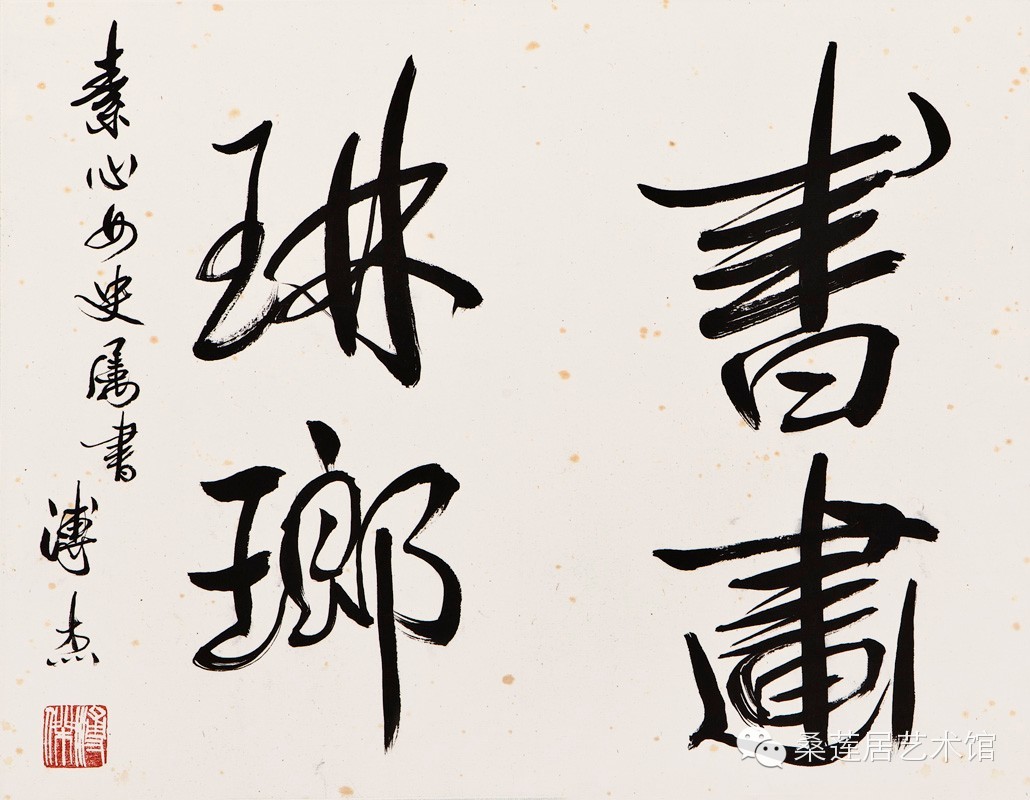 書畫
琳瑯
素心女史属書
溥杰
溥傑
桑莲居艺术馆